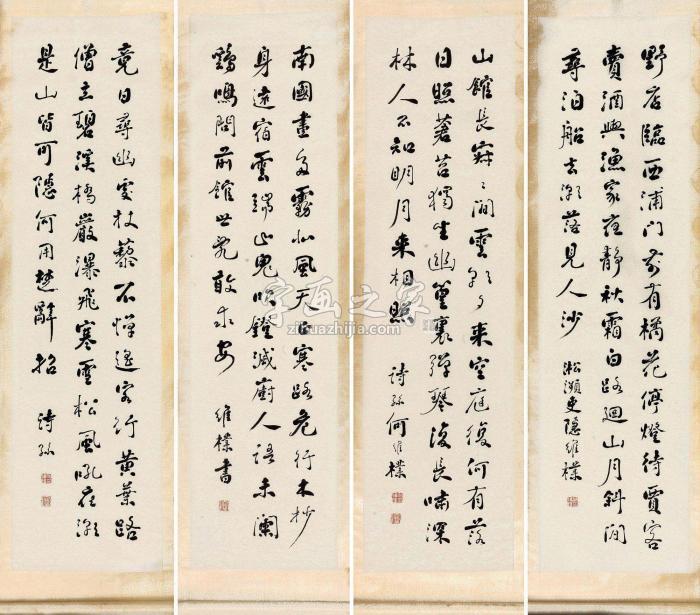 野店臨西浦门前有橘花停燈待賈客
賣酒與漁家夜靜秋霜白路迴山月斜间
尋泊船去潮落見平沙
淞瀕吏隱維樸
山館長寂〻间雲朝夕来空庭復何有落
日照蒼苔獨坐幽篁裏彈琴復長嘯深
林人不知明月来相照
詩孫何維樸
南國晝多霧北風天正寒路危行木杪
身遠宿雲端山鬼吹鐙滅廚人語未闌
鷄鳴問前館世亂敢求安
維樸書
竟日尋幽處杖藜不憚遥客行黄葉路
僧立碧溪橋巖瀑飛寒雪松風吼夜潮
是山皆可隱何用楚辭招
詩孫
字画之家
zihuazhijia.com